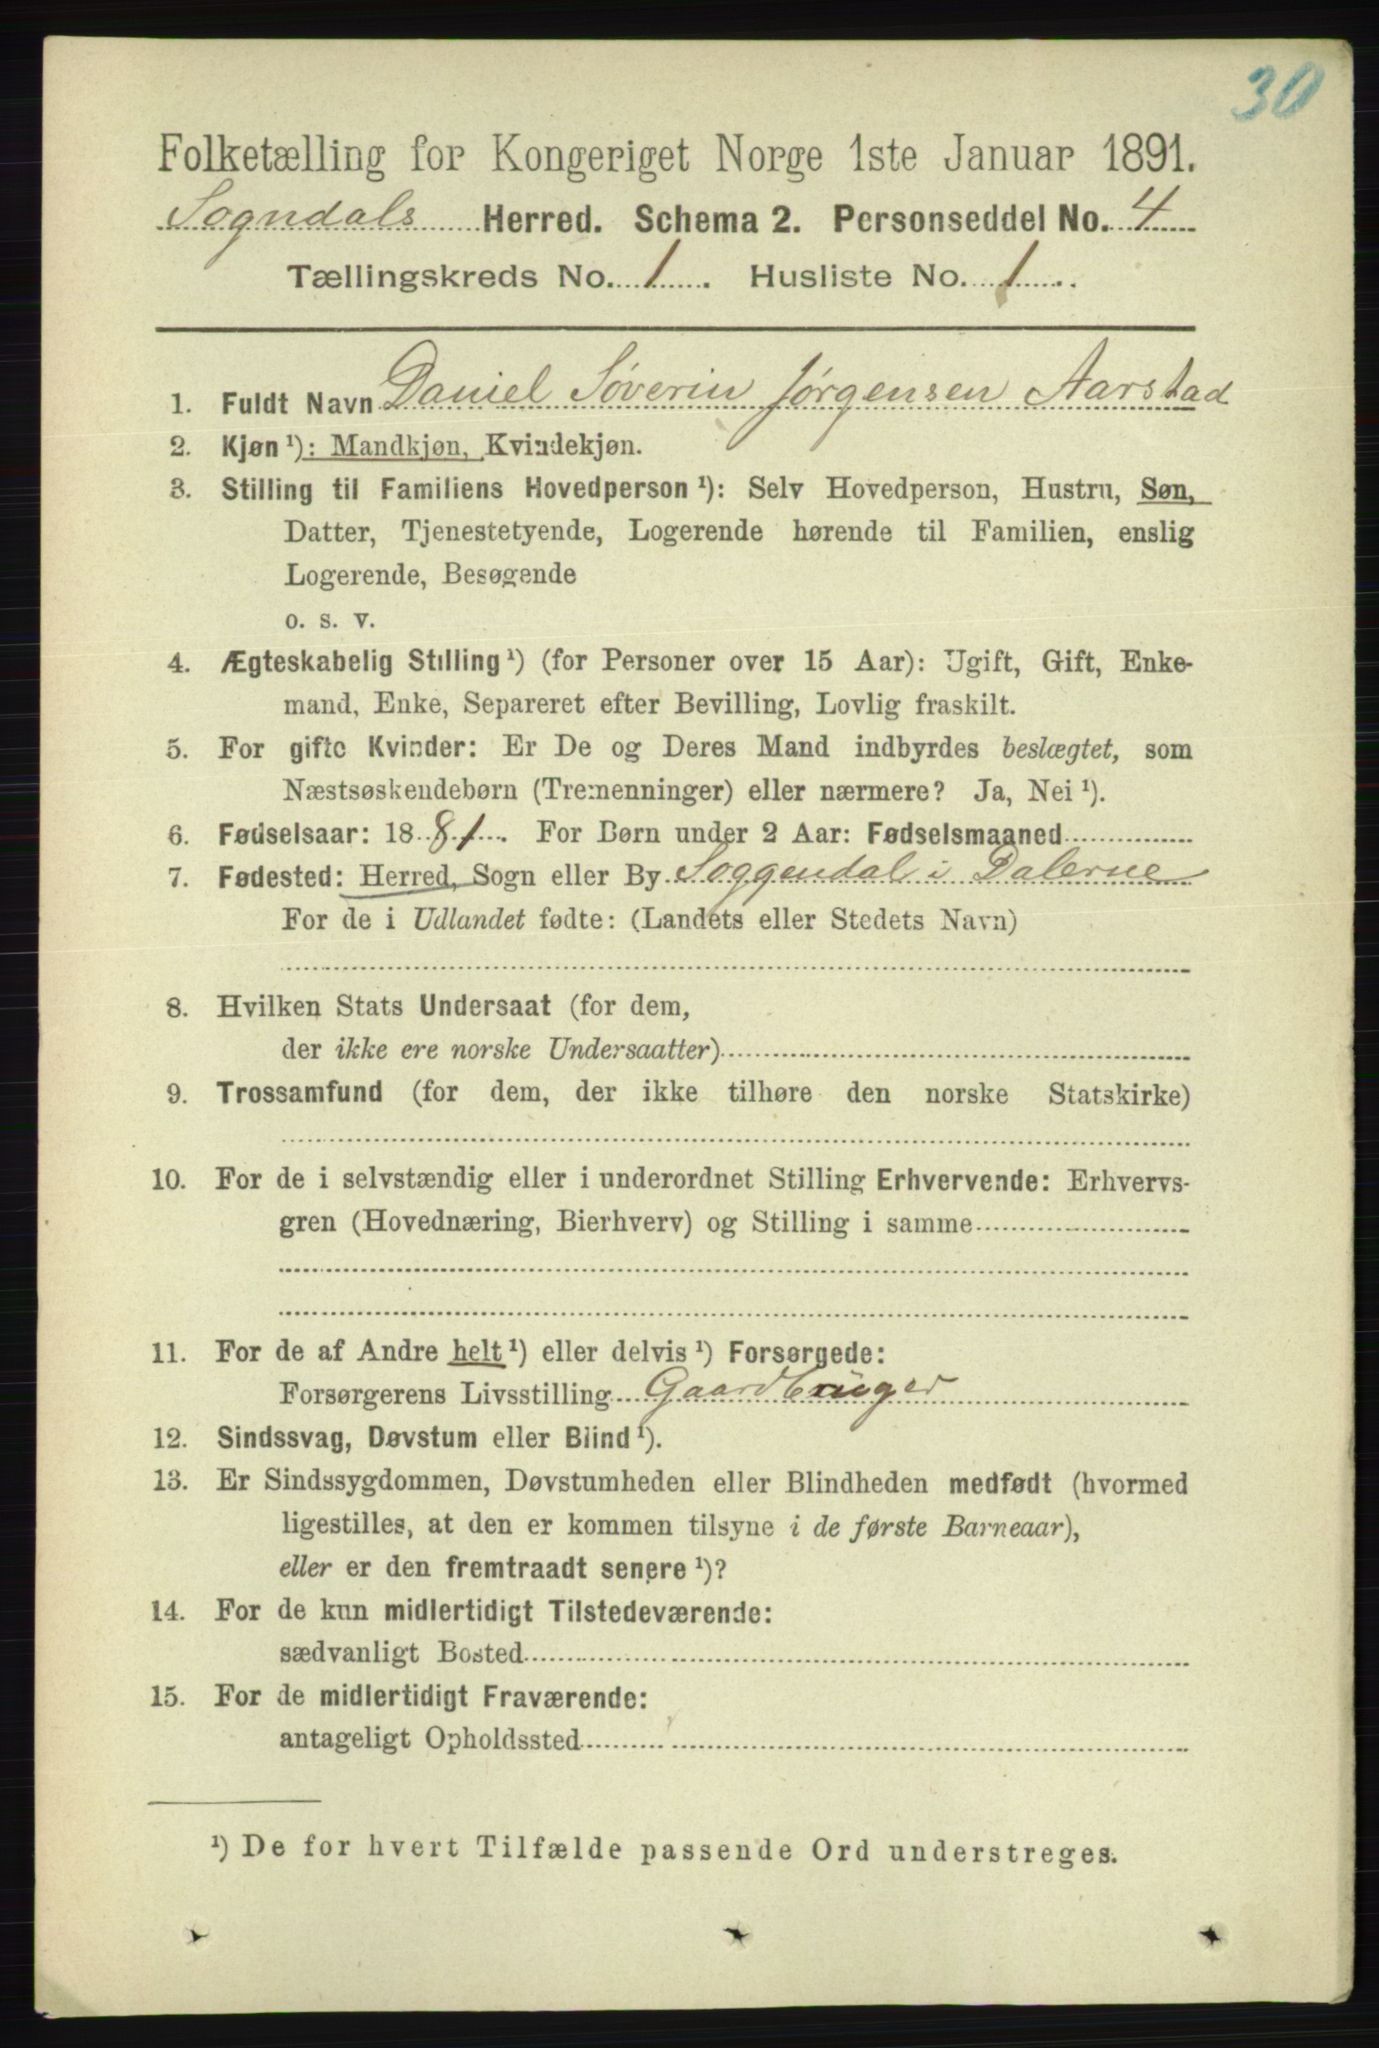 30
Folketælling for Kongeriget Norge 1ste Januar 1891.
Sogndals Herred. Schema 2. Personseddel No. 4
Tællingskreds No. 1. Husliste No. 1.
1. Fuldt Navn Daniel Søverin Jørgensen Aarstad
2. Kjøn ¹): Mandkjøn, Kvindekjøn.
3. Stilling til Familiens Hovedperson ¹): Selv Hovedperson, Hustru, Søn,
Datter, Tjenestetyende, Logerende hørende til Familien, enslig
Logerende, Besøgende
o. s. v.
4. Ægteskabelig Stilling ¹) (for Personer over 15 Aar): Ugift, Gift, Enke-
mand, Enke, Separeret efter Bevilling, Lovlig fraskilt.
5. For gifte Kvinder: Er De og Deres Mand indbyrdes beslægtet, som
Næstsøskendebørn (Tremenninger) eller nærmere? Ja, Nei ¹).
6. Fødselsaar: 1881. For Børn under 2 Aar: Fødselsmaaned
7. Fødested: Herred, Sogn eller By Soggendal i Dalerne
For de i Udlandet fødte: (Landets eller Stedets Navn)
8. Hvilken Stats Undersaat (for dem,
der ikke ere norske Undersaatter)
9. Trossamfund (for dem, der ikke tilhøre den norske Statskirke)
10. For de i selvstændig eller i underordnet Stilling Erhvervende: Erhvervs-
gren (Hovednæring, Bierhverv) og Stilling i samme
11. For de af Andre helt ¹) eller delvis ¹) Forsørgede:
Forsørgerens Livsstilling Gaardbruger
12. Sindssvag, Døvstum eller Blind ¹).
13. Er Sindssygdommen, Døvstumheden eller Blindheden medfødt (hvormed
ligestilles, at den er kommen tilsyne i de første Barneaar),
eller er den fremtraadt senere ¹)?
14. For de kun midlertidigt Tilstedeværende:
sædvanligt Bosted
15. For de midlertidigt Fraværende:
antageligt Opholdssted
¹) De for hvert Tilfælde passende Ord understreges.